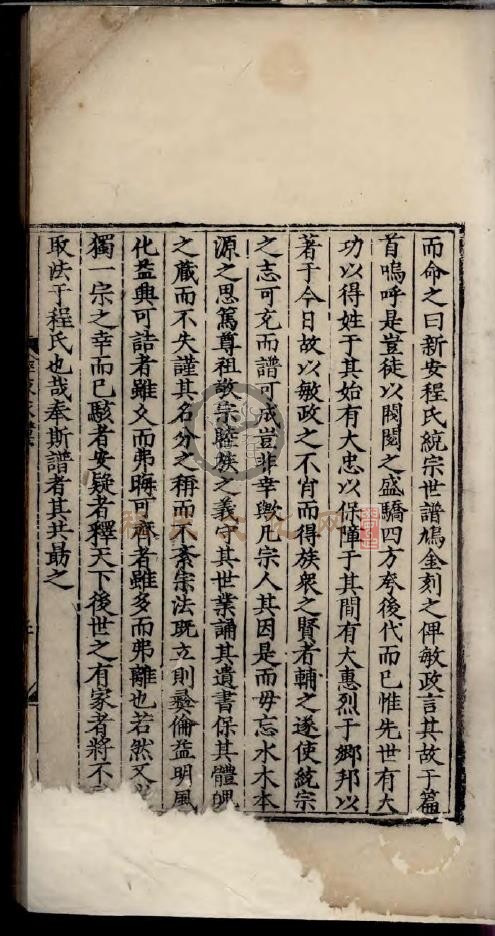 而命之曰新安程氏統宗世譜鳩金刻之俾敏政言其故于篇
首嗚呼是豈徒以閥閱之盛驕四方夸後代而已惟先世有大
功以得姓于其始有大忠以保障于其間有大惠烈于鄉邦以
著于今日故以敏政之不肖而得族衆之賢者輔之遂使統宗
之志可充而譜可成豈非幸歟凡宗人其因是而毋忘水木本
源之思篤尊祖敬宗睦族之義守其世業誦其遺書保其體魄
之藏而不失謹其名分之稱而不紊宗法既立則彝倫益明風
化益興可詰者雖久而弗晦可齊者雖多而弗離也若然又
獨一宗之幸而已駭者安疑者釋天下後世之有家者將不
取法于程氏也哉奉斯譜者其共勗之